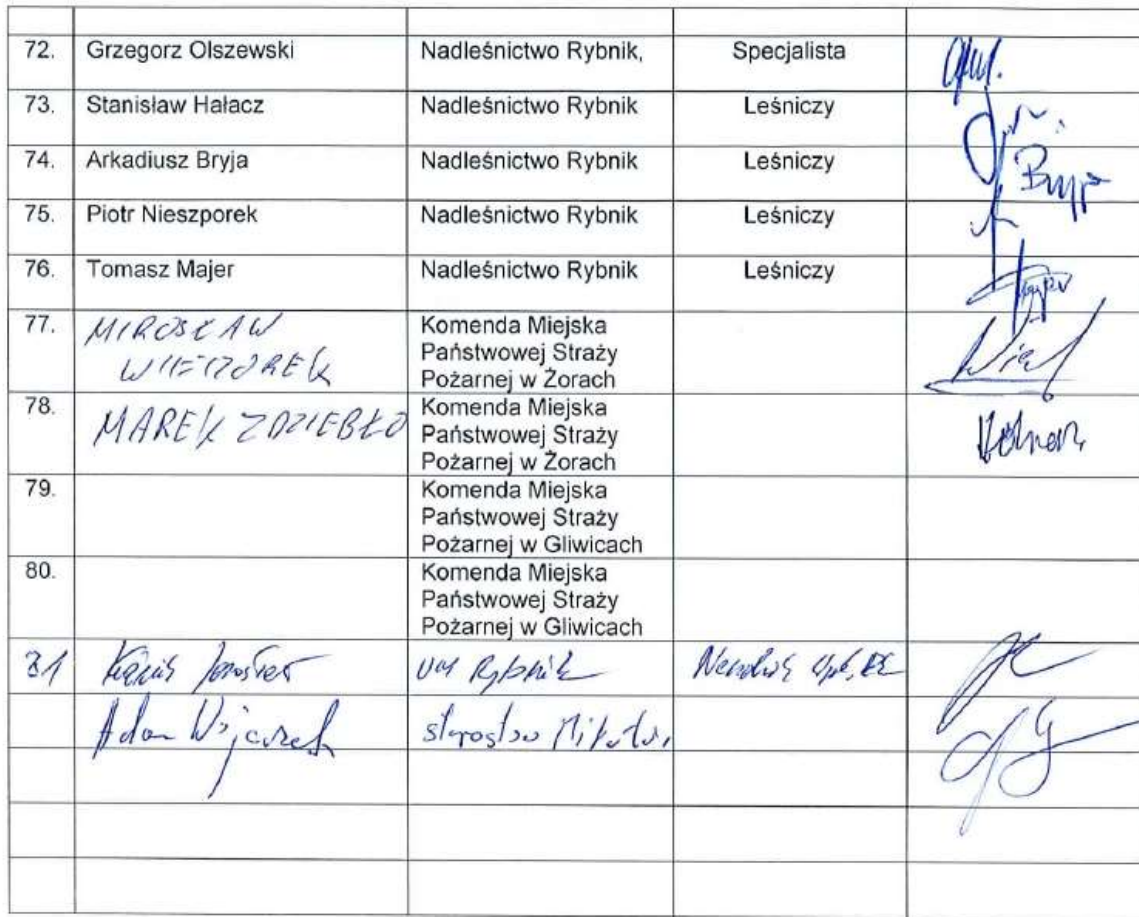 72. Grzegorz Olszewski Nadleśnictwo Rybnik, Specjalista
73. Stanisław Hałacz Nadleśnictwo Rybnik Leśniczy
74. Arkadiusz Bryja Nadleśnictwo Rybnik Leśniczy
75. Piotr Nieszporek Nadleśnictwo Rybnik Leśniczy
76. Tomasz Majer Nadleśnictwo Rybnik Leśniczy
77. MIROSŁAW
WIECZOREK
Komenda Miejska
Państwowej Straży
Pożarnej w Żorach
78. MAREK ZDZIEBŁO
Komenda Miejska
Państwowej Straży
Pożarnej w Żorach
79. Komenda Miejska
Państwowej Straży
Pożarnej w Gliwicach
80. Komenda Miejska
Państwowej Straży
Pożarnej w Gliwicach
81 UM Rybnik
Adam Wojaczek starostwo Mikołów